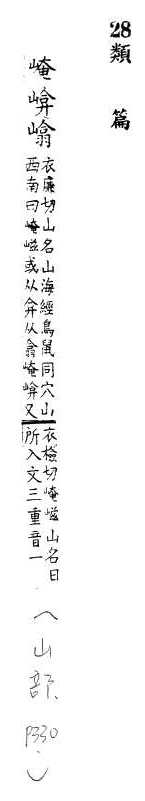 28類篇
崦
衣廉切山名山海經鳥鼠同穴山
西南曰崦嵫或从弇从翕崦又
衣檢切崦嵫山名日
所入文三重音一
(山部、P330.)